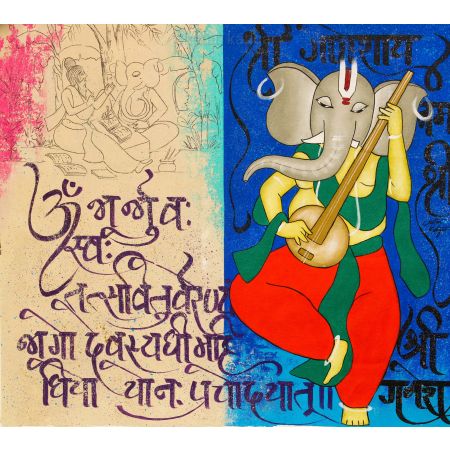 श्री गणेशाय
ॐ भूर्भुवः
स्वः
तत्सवितुर्वरेण्य
भर्गो देवस्य धीमहि
धियो यो नः प्रचोदयात्॥
श्री
श्री
गणेश